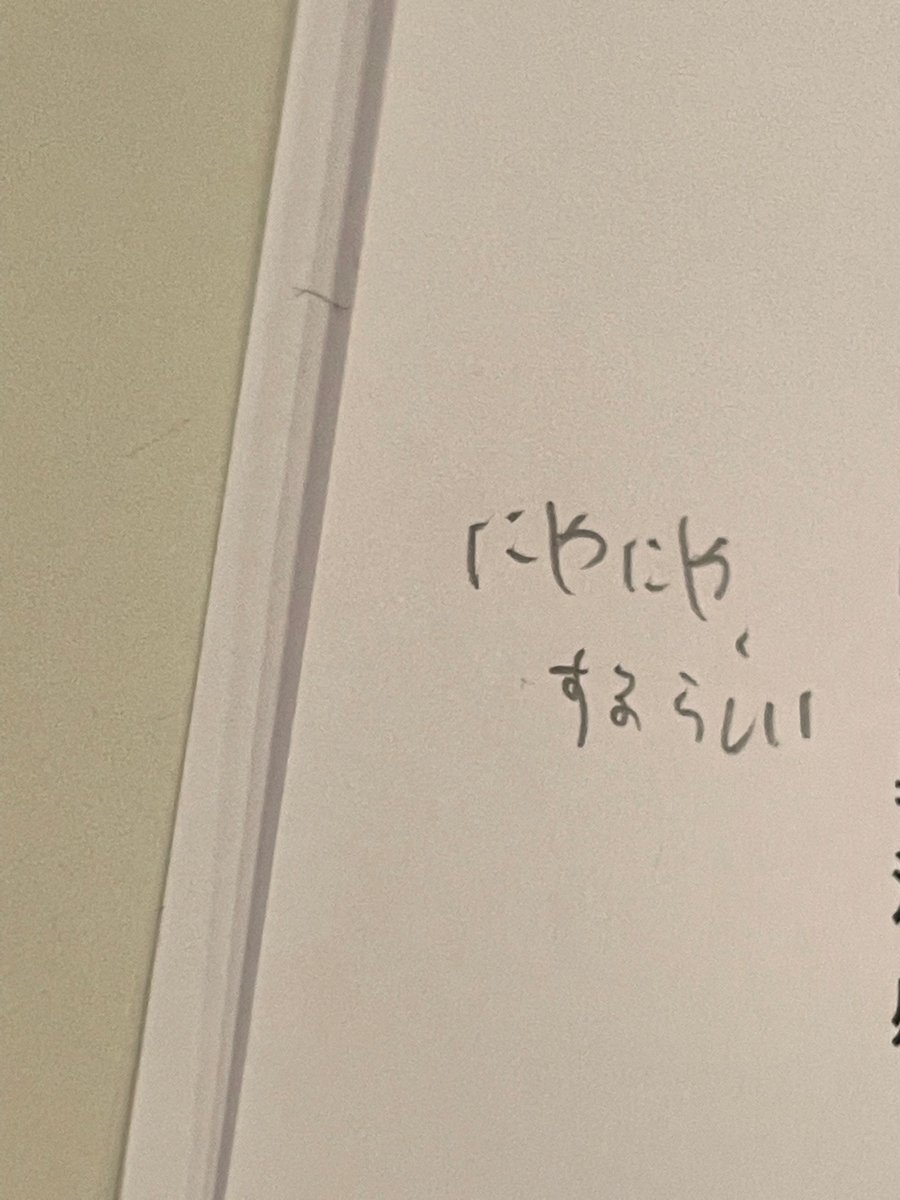 にやにや
するくらい